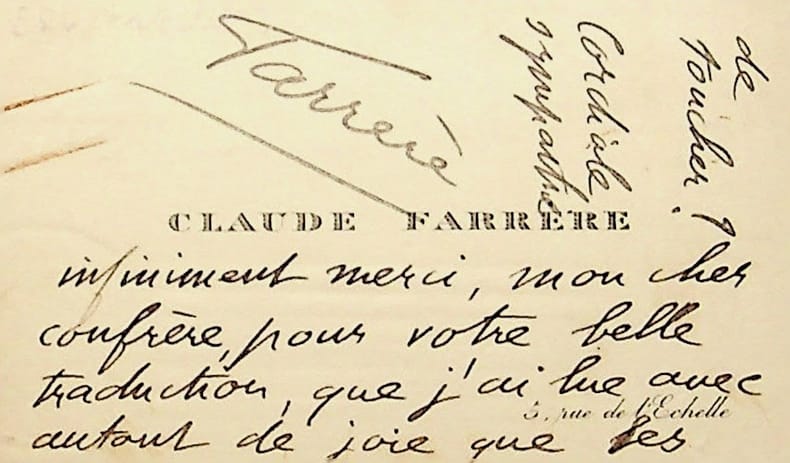 CLAUDE FARRÈRE
infiniment merci, mon cher
confrère, pour votre belle
traduction, que j'ai lue avec
5, rue de l'Echelle
autant de joie que les
de
toucher !
Cordiale
sympathie
Farrère